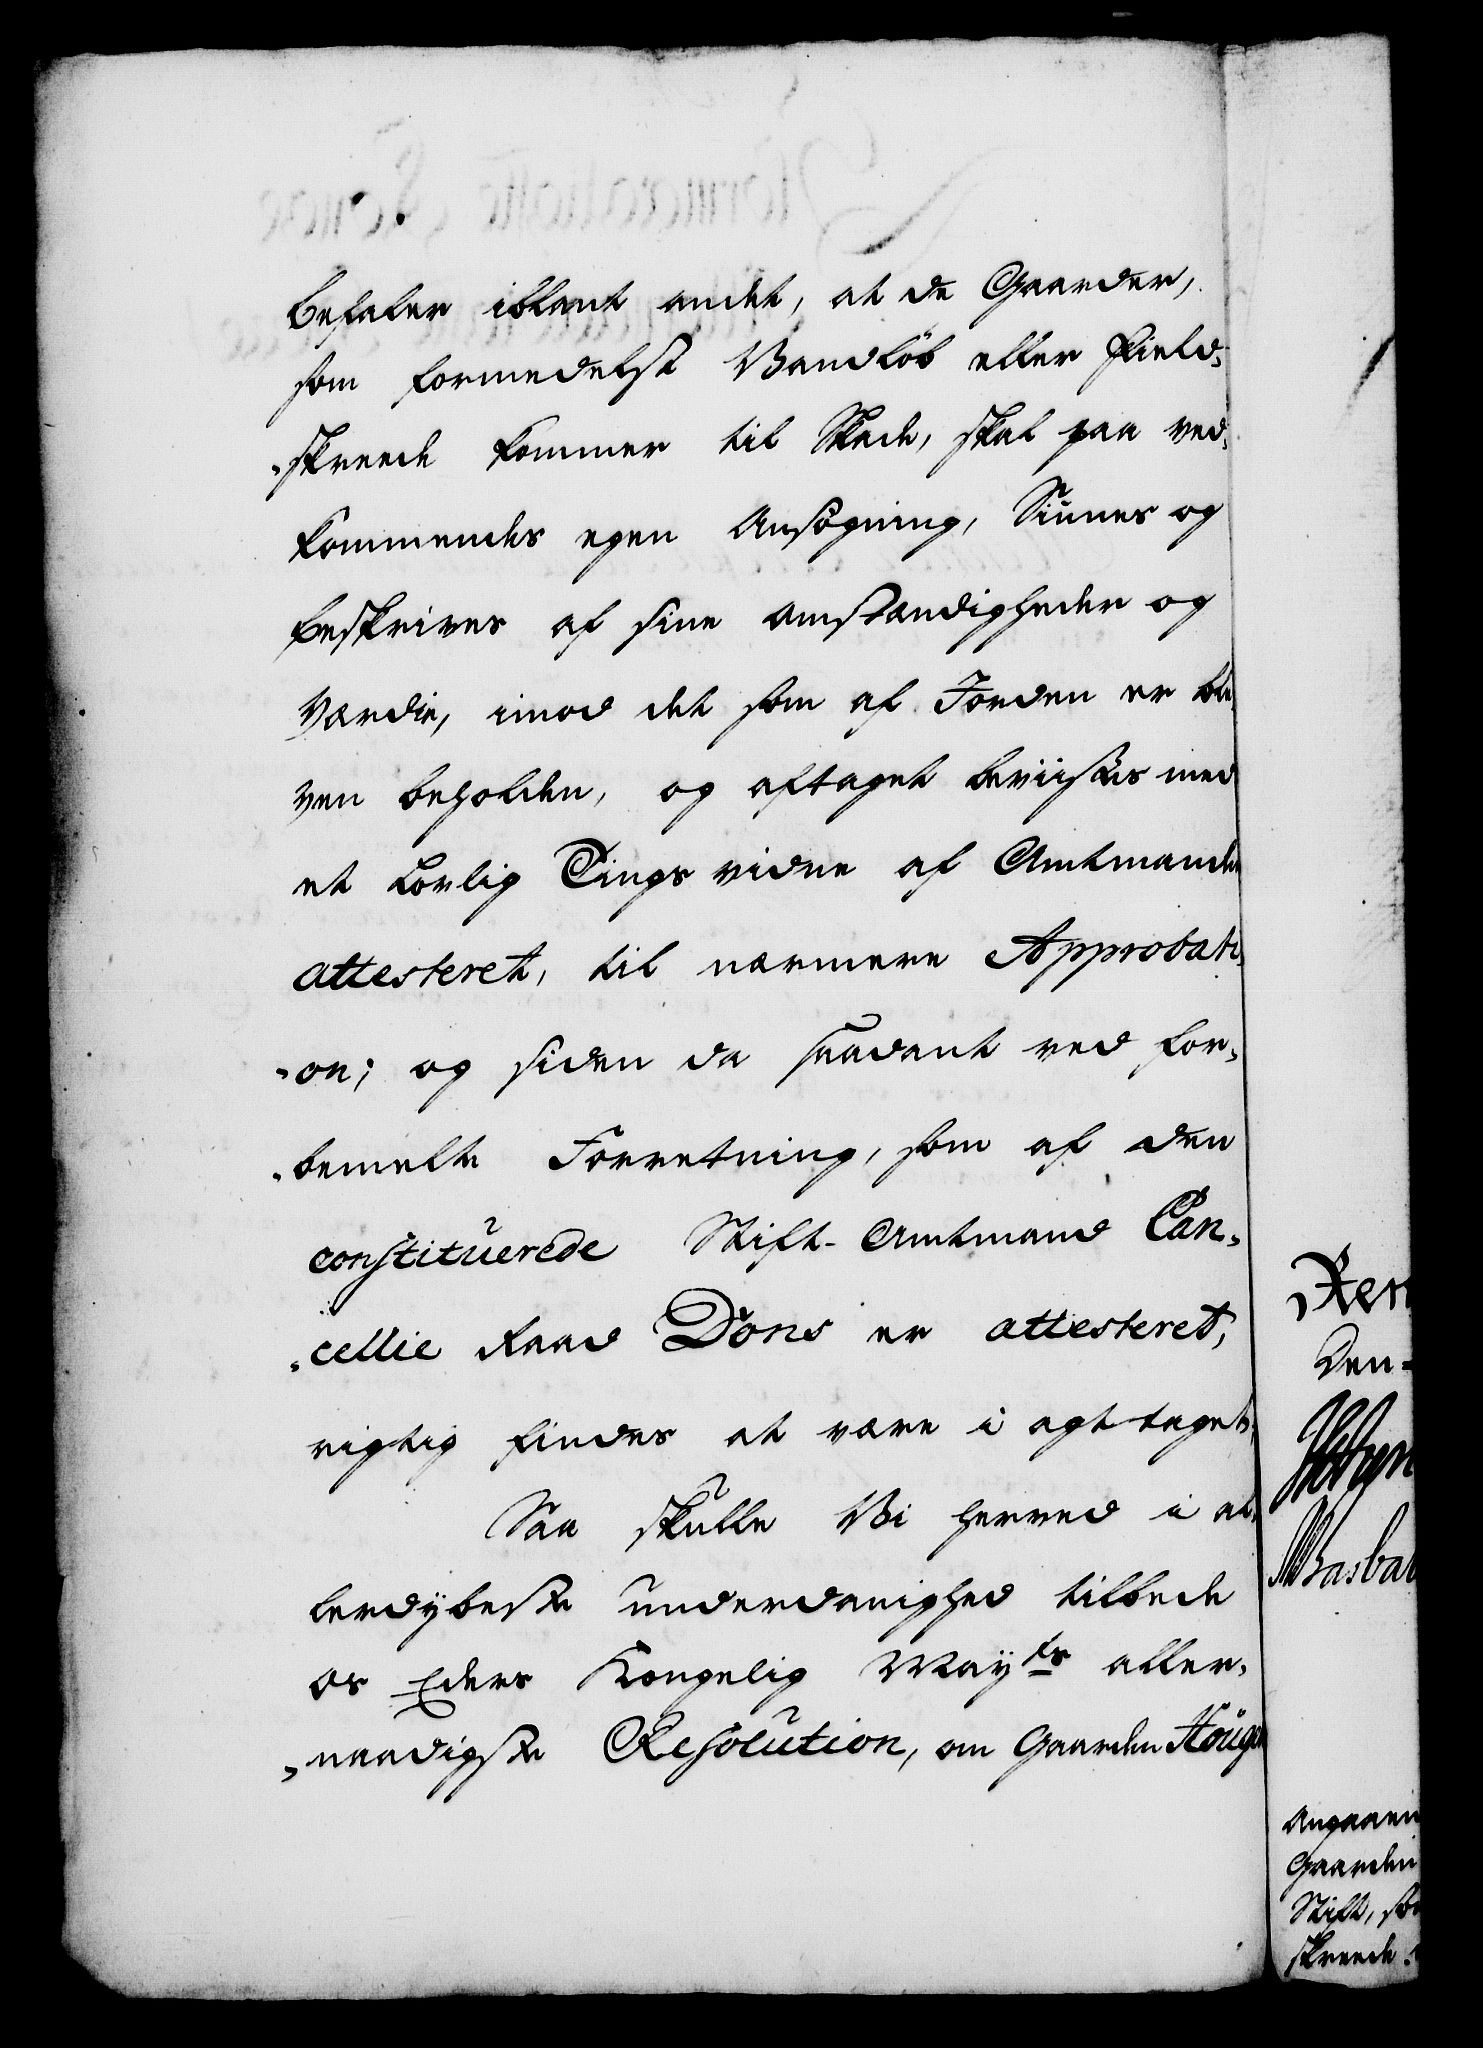 befaler iblant andet, at de Gaarder,
som formedelst Vandløb eller Field-
-skreede kommer til Skade, skal paa ved-
kommendes egen Ansøgning, Siunes og
beskrives af sine Omstændigheder og
Værdie, imod det som af Jorden er ble
ven beholden, og aftaget beviises med
et Lovlig Tings vidne af Amtmanden
attesteret, til nærmere Approbati-
-on; og siden da saadant ved for-
-bemelte Forretning, som af den
constituerede Stift-Amtmand Can-
-cellie Raad Dons er attesteret,
rigtig findes at være i agt taget.
Saa skulle Vi herved i al-
lerdÿbeste underdanighed tilbede
os Eders Kongelig Maÿts aller-
-naadigste Resolution, om Gaarden Houge
Ren
Den-
Angaaen
Gaarden
Stift, so
skreede